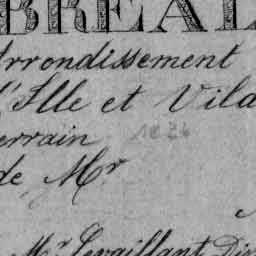 BREAL
Arrondissement
d'Ille et Vila
terrain 1826
de Mr
Mr Levaillant Dir